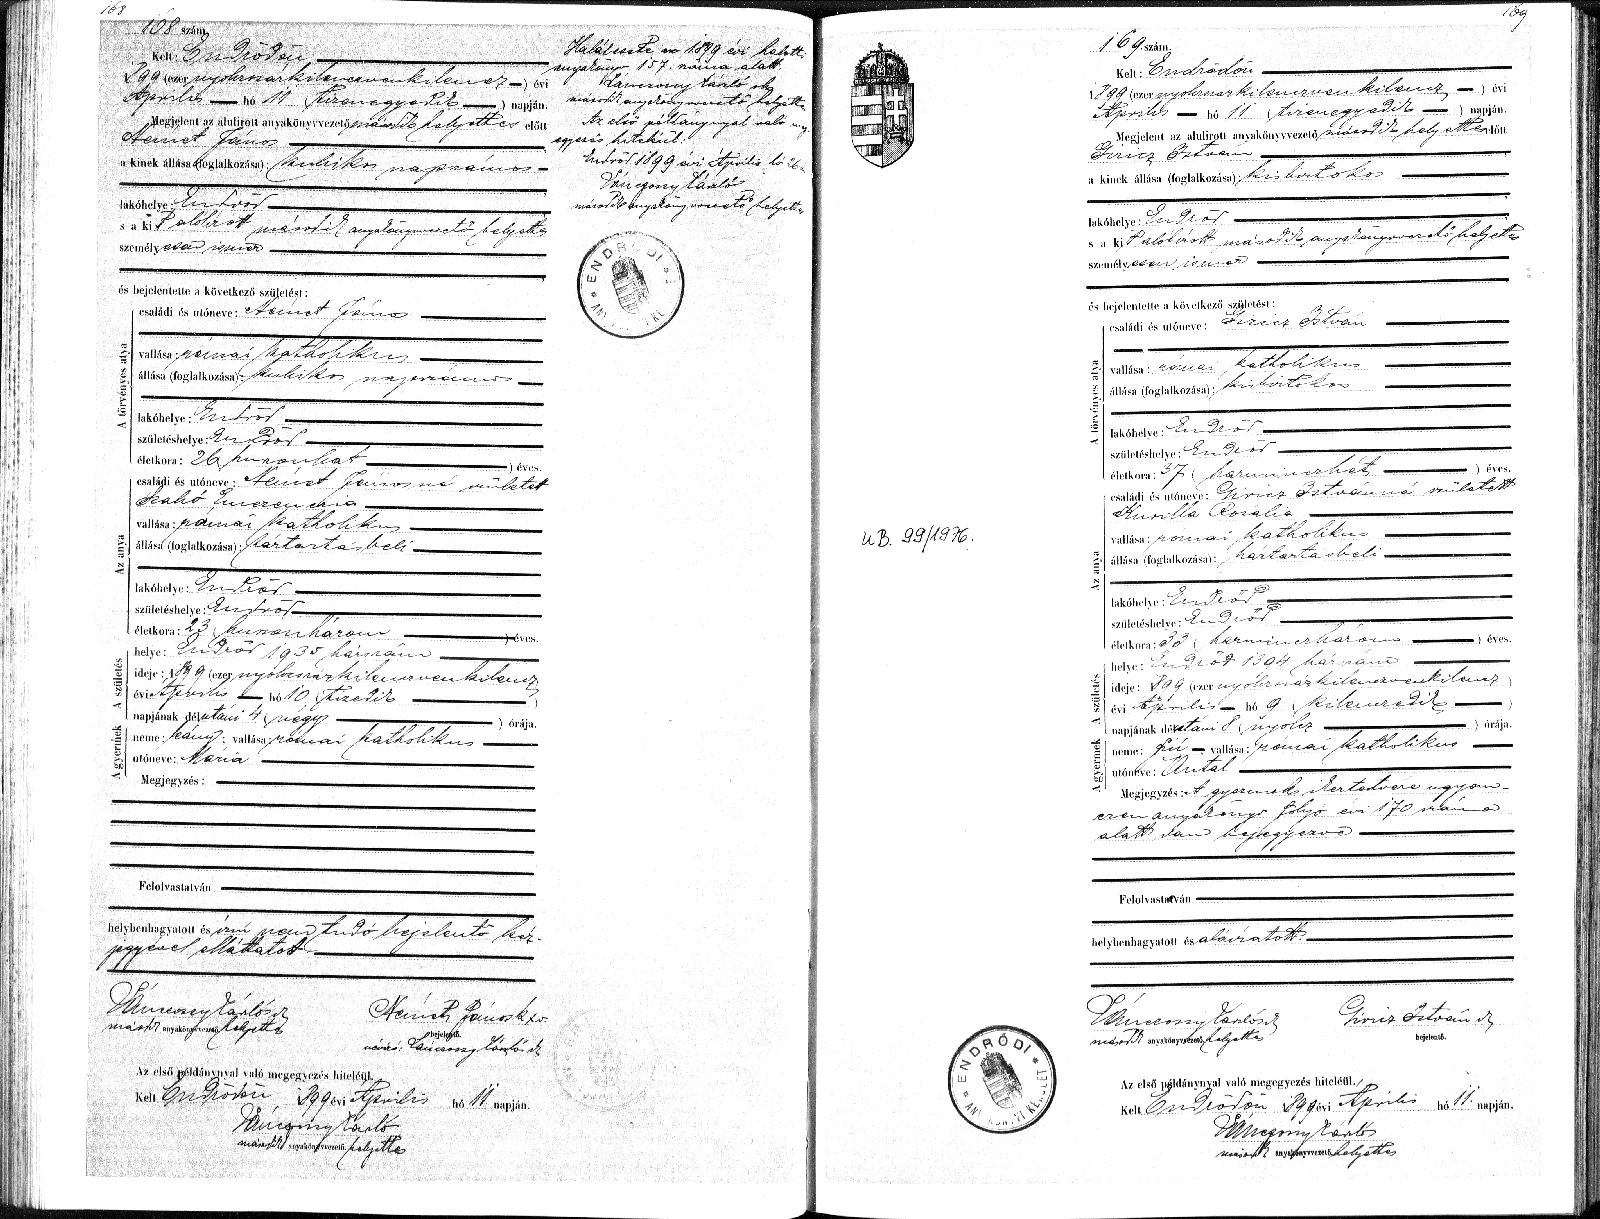 168
168 szám
Kelt: Endrődön
899 (ezer nyolcszázkilencvenkilencz) évi
Április hó 11 (tizenegyedik) napján.
Megjelent az alulirott anyakönyvvezető második helyettes előtt
Német János
a kinek állása (foglalkozása): kubikos napszámos
lakóhelye: Endrőd
s a ki alólirott második anyakönyvvezető helyettes
személyesen ismer
és bejelentette a következő születést:
A törvényes atya
családi és utóneve: Német János
vallása: római katholikus
állása (foglalkozása): kubikos napszámos
lakóhelye: Endrőd
születéshelye: Endrőd
életkora: 26 (huszonhat) éves.
Az anya
családi és utóneve: Német Jánosné született
Szabó Emerencia
vallása: római katholikus
állása (foglalkozása): háztartásbeli
lakóhelye: Endrőd
születéshelye: Endrőd
életkora: 23 (huszonhárom) éves.
A születés
helye: Endrőd 1935 házszám
ideje: 1899 (ezer nyolcszázkilencvenkilencz)
évi Április hó 10 (tizedik)
napjának délutáni 4 (négy) órája.
A gyermek
neme: leány; vallása: római katholikus
utóneve: Mária
Megjegyzés:
Felolvastatván
helybenhagyatott és irni nem tudó bejelentő kéz-
jegyével elláttatott
második anyakönyvvezető helyettes
Német János
bejelentő.
Az első példánynyal való megegyezés hiteléül.
Kelt Endrődön 899 évi Április hó 11. napján.
második anyakönyvvezető helyettes
Halálesete az 1899 évi halotti
anyakönyv 157. száma alatt.
második anyakönyvvezető helyettes
Az első példánynyal való meg-
egyezés hiteléül:
Endrőd 1899 évi Április hó
második anyakönyvvezető helyettes
ENDRŐDI
169
169 szám.
Kelt: Endrődön
1899 (ezer nyolcszázkilencvenkilencz) évi
Április hó 11 (tizenegyedik) napján.
Megjelent az alulirott anyakönyvvezető második helyettes előtt
Giricz István
a kinek állása (foglalkozása): kisbirtokos
lakóhelye: Endrőd
s a ki alólirott második anyakönyvvezető helyettes
személyesen ismer
és bejelentette a következő születést:
A törvényes atya
családi és utóneve: Giricz István
vallása: római katholikus
állása (foglalkozása): kisbirtokos
lakóhelye: Endrőd
születéshelye: Endrőd
életkora: 37 (harminczhét) éves.
Az anya
családi és utóneve: Giricz Istvánné született
Kurilla Rozália
vallása: római katholikus
állása (foglalkozása): háztartásbeli
lakóhelye: Endrőd
születéshelye: Endrőd
életkora: 33 (harminczhárom) éves.
A születés
helye: Endrőd 1304 házszám
ideje: 899 (ezer nyolcszázkilencvenkilencz)
évi Április hó 9 (kilenczedik)
napjának délutáni 8 (nyolcz) órája.
A gyermek
neme: fiú vallása: római katholikus
utóneve: Antal
Megjegyzés: A gyermek ikertestvére ugyan-
ezen anyakönyv folyó évi 170 száma
alatt van bejegyezve
Felolvastatván
helybenhagyatott és aláiratott.
második anyakönyvvezető helyettes
Giricz István
bejelentő.
Az első példánynyal való megegyezés hiteléül.
Kelt Endrődön 899 évi Április hó 11. napján.
második anyakönyvvezető helyettes
UB. 99/1976.
ENDRŐDI